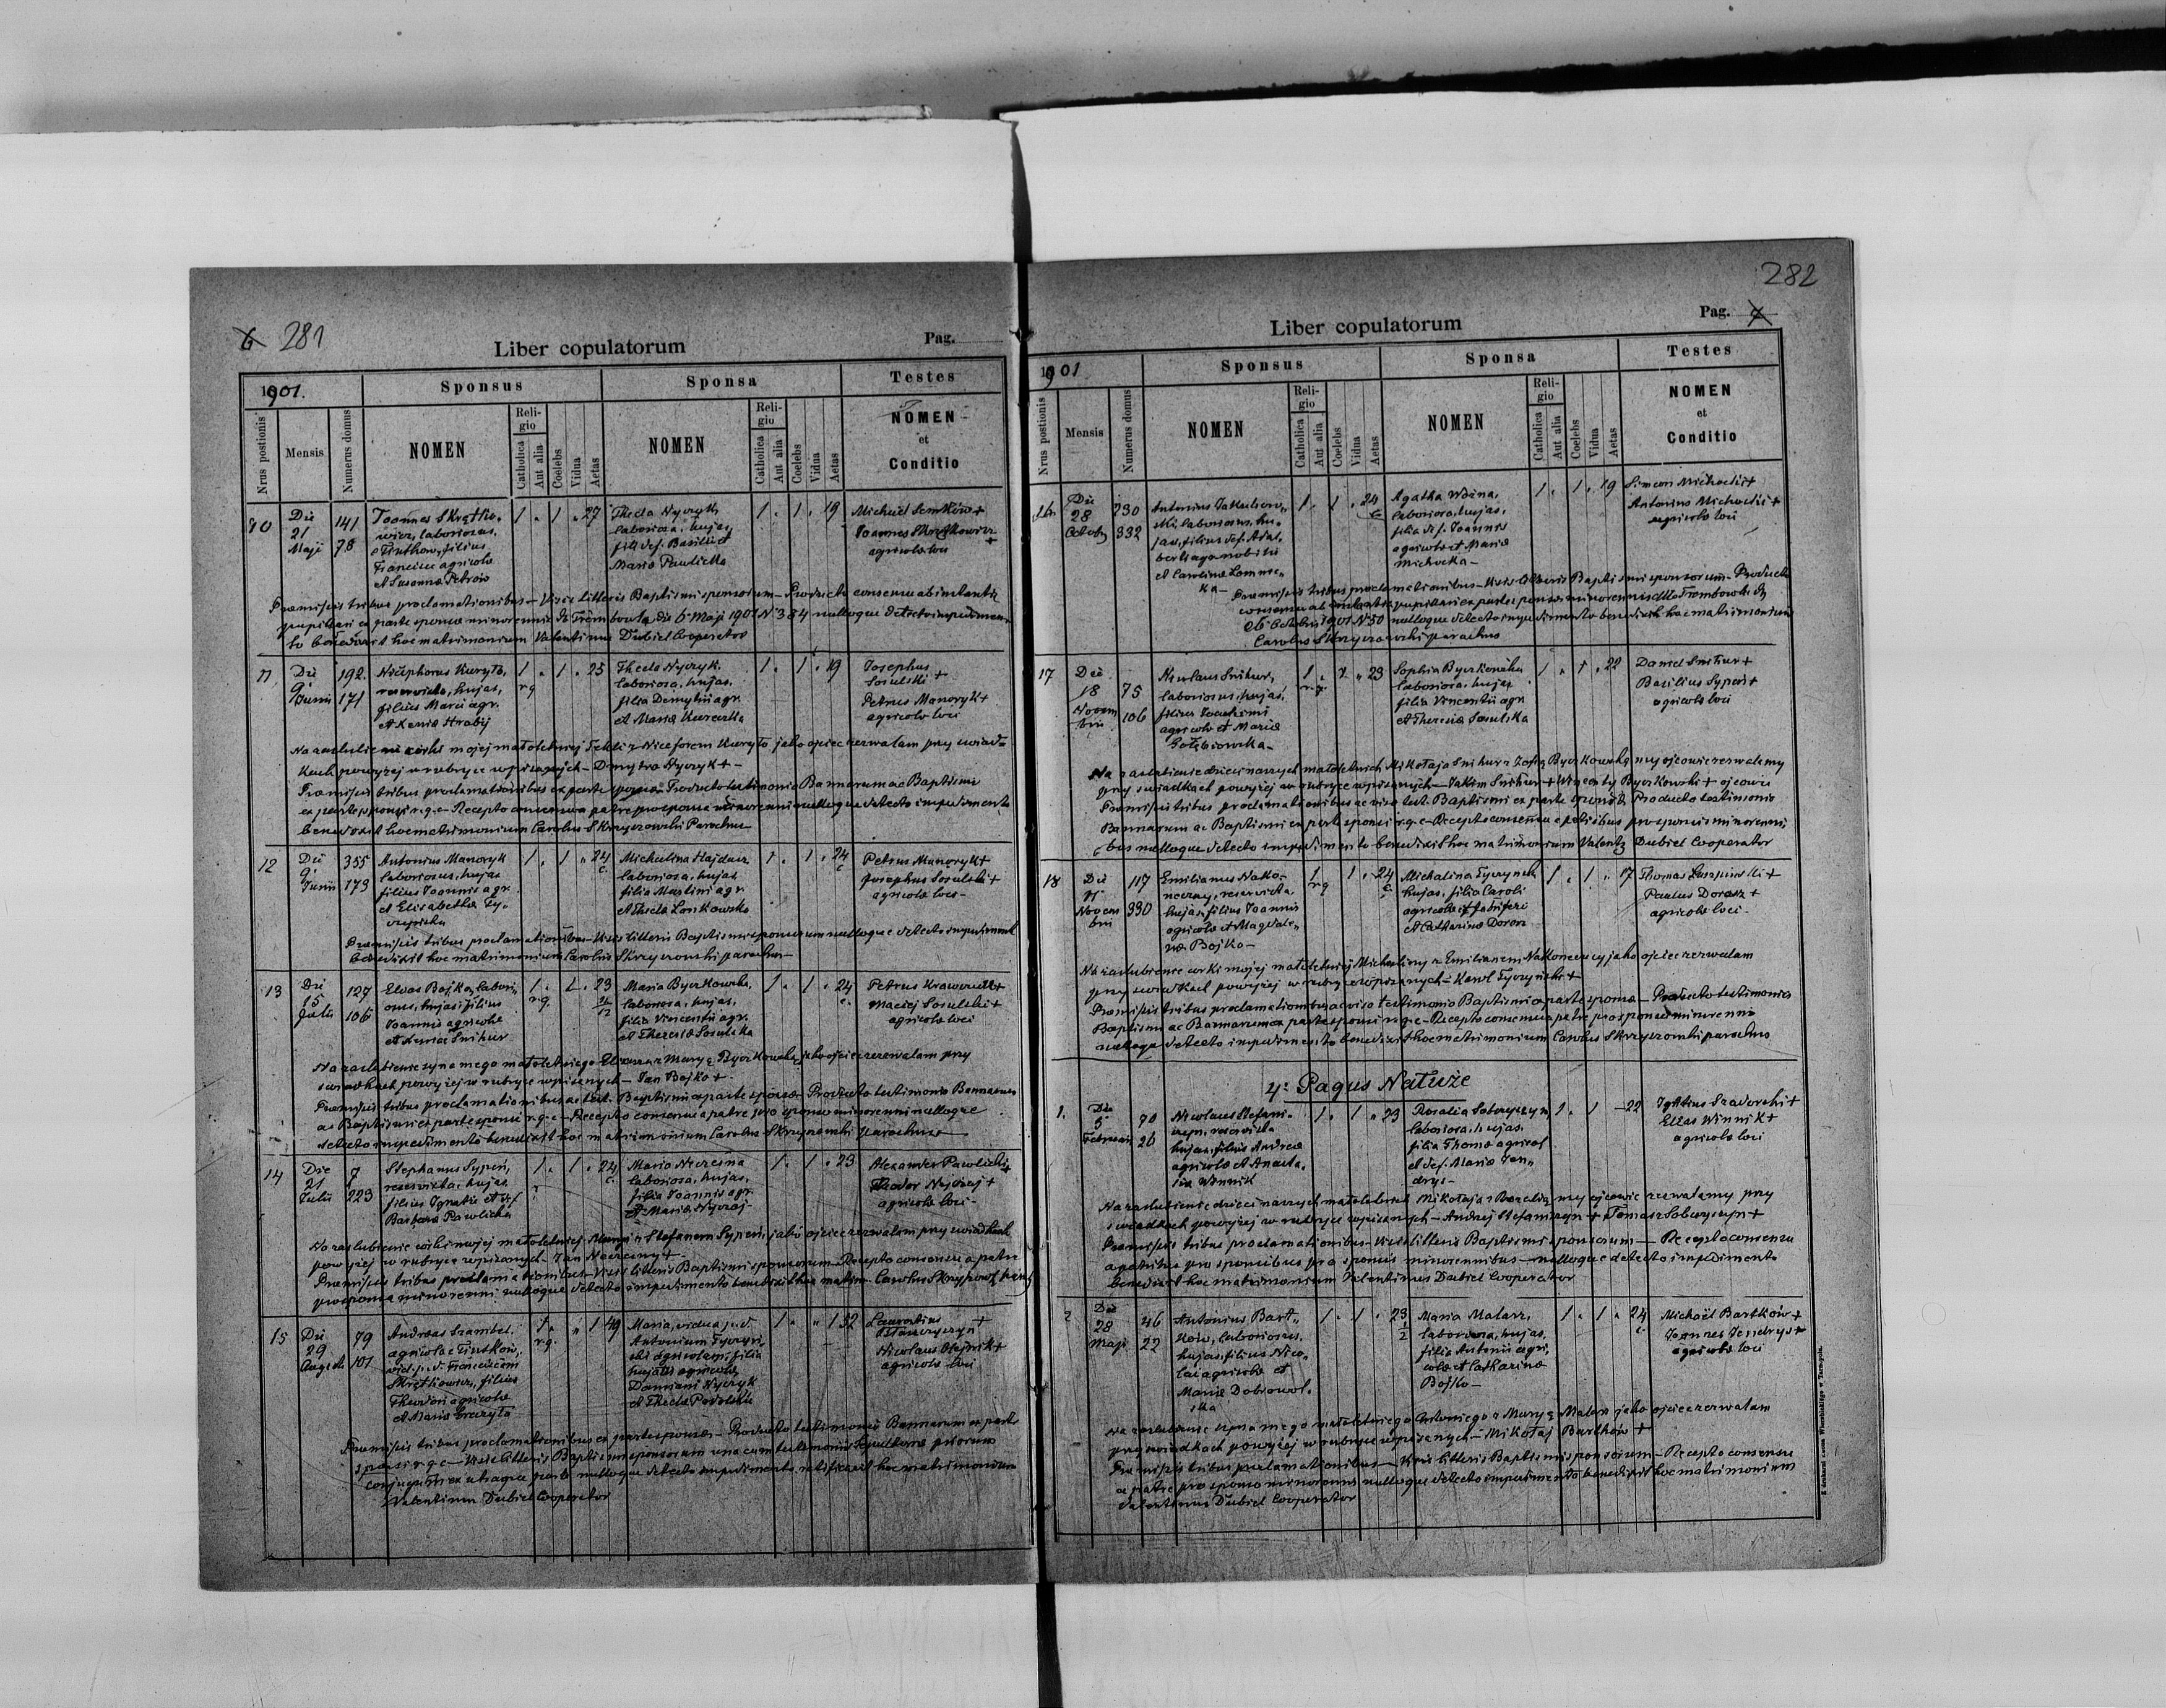 6 281
Liber copulatorum
Pag.
1901.
Sponsus
Sponsa
Testes
Nrus postionis
Mensis
Numerus domus
NOMEN
Religio
Catholica
Aut alia
Coelebs
Vidua
Aetas
NOMEN
Religio
Catholica
Aut alia
Coelebs
Vidua
Aetas
NOMEN
et
Conditio
10
Die
21
Maji
141
78
Joannes Skrętko-
wicz, laboriosus,
filius
Francisci agricolae
et Susannae Petrów
1 " 1 " 27
Thecla Nyczyk
laboriosa, hujas,
fil. def. Basilii et
Maria Pawlicka
1 " 1 " 19
Michael Semków +
Joannes
agricolae loci
Praemissis tribus proclamationibus - Visis litteris Baptismi sponsorum - Producto consensu ab instantia
pupillari ex parte sponsae minorennis de Trembowla die 6 Maji 1901 N. 384 nulloque detecto impedimen-
to benedixit hoc matrimonium Valentinus Dubiel Cooperator
11
Die
9
Junii
192
171
Nicephorus Kuryło,
reservista, hujas,
filius Marci agr.
et Xenia Hrabij
1 " 1 " 25
r.g.
Thecla Nyczyk
laboriosa, hujas,
filia Demytrii agr.
et Maria
1 " 1 " 19
Josephus
Sosulski +
Petrus Manoryk +
agricolae loci
Na zaślubienie córki mojej małoletniej Tekli z Niceforem Kuryło jako ojciec zezwalam przy świad-
kach powyżej w rubryce wpisanych - Dmytro Nyczyk +
Praemissis tribus proclamationibus ex parte sponsae Producto testimonio Bannorum ac Baptismi
ex parte sponsi r.g.c - Recepto consensu a patre pro sponsa minorenni nulloque detecto impedimento
benedixit hoc matrimonium Carolus Skrzyszowski Parochus
12
Die
9
Junii
355
173
Antonius Manoryk
laboriosus, hujas
filius Joannis agr.
et Elisabetha Ty-
1 " 1 " 24
Michalina Hajducz
laboriosa, hujas,
filia Martini agr.
et Thecla Lonkowska
1 " 1 " 24
Petrus Manoryk +
Josephus Sosulski +
agricolae loci
Praemissis tribus proclamationibus - Visis litteris Baptismi sponsorum nulloque detecto impedimento
benedixit hoc matrimonium Carolus Skrzyszowski parochus
13
Die
15
Julii
127
106
Elias Bojko, labori-
osus, hujas, filius
Joannis agricolae
et Xenia Snihur
1 " 1 " 23
r.g.
Maria Byczkowska,
laboriosa, hujas,
filia Vincentii agr.
et Theresia Sosulska
1 " 1 " 24
Petrus +
Maciej Sosulski +
agricolae loci
Na zaślubienie syna mego małoletniego Eliasza z Maryą Byczkowską jako ojciec zezwalam przy
świadkach powyżej w rubryce wpisanych - Jan Bojko +
Praemissis tribus proclamationibus ac test. Baptismi ex parte sponsae Producto testimonio Bannorum
ac Baptismi ex parte sponsi r.g.c - Recepto consensu a patre pro sponso minorenni nulloque
detecto impedimento benedixit hoc matrimonium Carolus Skrzyszowski Parochus
14
Die
21
Julii
7
223
Stephanus Sypeń,
reservista, hujas,
filius Ignatii et def.
Barbara Pawlicka
1 " 1 " 24
Maria
laboriosa, hujas,
filia Joannis agr.
et Maria Nyczaj
1 " 1 " 23
Alexander Pawlicki +
Theodor Nyczaj +
agricolae loci
Na zaślubienie córki mojej małoletniej Maryi z Stefanem Sypeń, jako ojciec zezwalam przy świadkach
powyżej w rubryce wpisanych - Jan +
Praemissis tribus proclamationibus - Visis litteris Baptismi sponsorum - Recepto consensu a patre
pro sponsa minorenni nulloque detecto impedimento benedixit hoc matrim. Carolus
15
Die
29
Augusti
79
101
Andreas Szambel
agricola e
vid. p. d. Franciscam
Skrętkowicz, filius
Theodori agricolae
et Maria Kuryło
1 " " 1 49
r.g.
Maria, vidua p. d.
Antonium
agricolam, filia
hujatis agricolae
Damiani Nyczyk
et Thecla Podolska
1 " " 1 52
Laurentius +
Nicolaus Olejnik +
agricolae loci
Praemissis tribus proclamationibus ex parte sponsae - Producto testimonio Bannorum ex parte
sponsi r.g.c - Visis litteris Baptismi sponsorum una cum testimoniis Sepulturae priorum
conjugum ex utraque parte nulloque detecto impedimento ratificavit hoc matrimonium
Valentinus Dubiel Cooperator
282
Liber copulatorum
Pag. 7
1901
Sponsus
Sponsa
Testes
Nrus postionis
Mensis
Numerus domus
NOMEN
Religio
Catholica
Aut alia
Coelebs
Vidua
Aetas
NOMEN
Religio
Catholica
Aut alia
Coelebs
Vidua
Aetas
NOMEN
et
Conditio
16
Die
28
Octobr.
230
332
Antonius Jakubow-
ski, laboriosus, hu-
jas, filius def. Adal-
berti agronobilis
et Carolina Lomnic-
ka -
1 " 1 " 24
Agatha Woźna,
laboriosa, hujas,
filia def. Joannis
agricolae et Maria
Michocka -
1 " 1 " 19
Simeon Michocki +
Antonius Michocki +
agricolae loci
Praemissis tribus proclamationibus - Visis litteris Baptismi sponsorum - Producto
consensu ab instantia pupillari ex parte sponsae minorennis ddto Trembowla de
26 Octobris 1901 N 50 nulloque detecto impedimento benedixit hoc matrimonium
Carolus Skrzyszowski parochus
17
Die
18
Novem
bris
75
106
Nicolaus Snihur,
laboriosus, hujas,
filius Joachimi
agricolae et Maria
Gołębiowska -
1 " 1 " 23
r.g.
Sophia Byczkowska
laboriosa, hujas,
filia Vincentii agr.
et Theresia Sosulska
1 " 1 " 22
Daniel Snihur +
Basilius Sypeń +
agricolae loci
Na zaślubienie dzieci naszych małoletnich Mikołaja Snihur z Zofią Byczkowską my ojcowie zezwalamy
przy świadkach powyżej w rubryce wpisanych - Jakim Snihur + Wincenty Byczkowski + ojcowie
Praemissis tribus proclamationibus ac viso test. Baptismi ex parte sponsae, Producto testimonio
Bannorum ac Baptismi ex parte sponsi r.g.c - Recepto consensu a patribus pro sponsis minorenni-
bus nulloque detecto impedimento benedixit hoc matrimonium Valent. Dubiel Cooperator
18
Die
Novem
bris
117
330
Emilianus Nako-
neczny, reservista,
hujas, filius Joannis
agricolae et Magdale-
na Bojko -
1 " 1 " 24
r.g.
Michalina Tyczyńska
hujas, filia Caroli
agricolae et fabri ferri
et Catharina Dorosz
1 " 1 " 17
Thomas +
Paulus Dorosz +
agricolae loci -
Na zaślubienie córki mojej małoletniej Michaliny z Emilianem Nakoneczny jako ojciec zezwalam
przy świadkach powyżej w rubryce wpisanych - Karol Tyczyński +
Praemissis tribus proclamationibus ac viso testimonio Baptismi ex parte sponsae - Producto testimonio
Baptismi ac Bannorum ex parte sponsi r.g.c - Recepto consensu a patre pro sponsa minorenni
nulloque detecto impedimento benedixit hoc matrimonium Carolus Skrzyszowski parochus
4: Pagus Nałuże
1.
Die
5
Februarii
70
26
Nicolaus Stefani-
szyn, reservista
hujas, filius Andreae
agricolae et Anasta-
sia Winnik
1 " 1 " 23
Rosalia Soboryszyn
laboriosa, hujas,
filia Thomae agricol.
et def. Maria Jen-
drys -
1 " 1 - 22
Ignatius +
Elias Winnik +
agricolae loci
Na zaślubienie dzieci naszych małoletnich Mikołaja z Rozalią my ojcowie zezwalamy przy
świadkach powyżej w rubryce wpisanych - Andrzej Stefaniszyn + Tomasz Soboryszyn +
Praemissis tribus proclamationibus - Visis litteris Baptismi sponsorum - Recepto consensu
a patribus pro sponsis minorennibus - nulloque detecto impedimento
benedixit hoc matrimonium Valentinus Dubiel Cooperator
2
Die
28
Maji
46
22
Antonius Bart-
ków, laboriosus,
hujas, filius Nico-
lai agricolae et
Maria Dobrowol-
ska
1 " 1 " 23
Maria Malarz,
laboriosa, hujas,
filia Antonii agri-
colae et Catharina
Bojko -
1 " 1 " 24
Michaël Bartków +
Joannes Jendrys +
agricolae loci
Na zaślubienie syna mego małoletniego Antoniego z Maryą Malarz jako ojciec zezwalam
przy świadkach powyżej w rubryce wpisanych - Mikołaj Bartków +
Praemissis tribus proclamationibus - Visis litteris Baptismi sponsorum - Recepto consensu
a patre pro sponso minorenni nulloque detecto impedimento benedixit hoc matrimonium
Valentinus Dubiel Cooperator